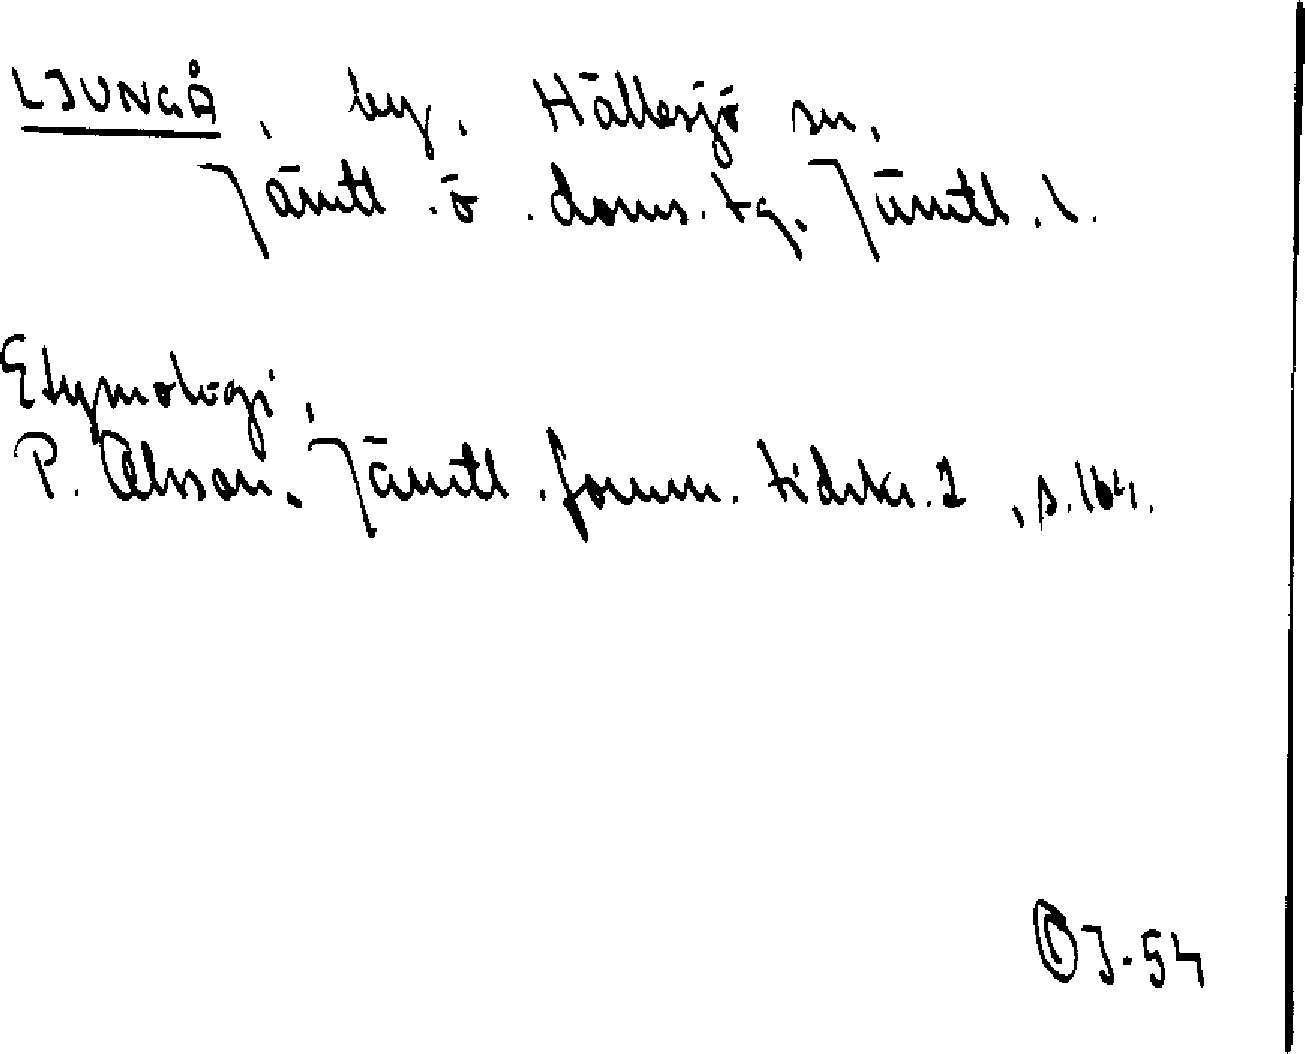 LJUNGÅ, by, Hällesjö sn,
Jämtl. ö. doms. tg. Jämtl. l.
Etymologi,
P. Olsson. Jämtl. fornm. tidskr. 2, s. 164.
OJ-54